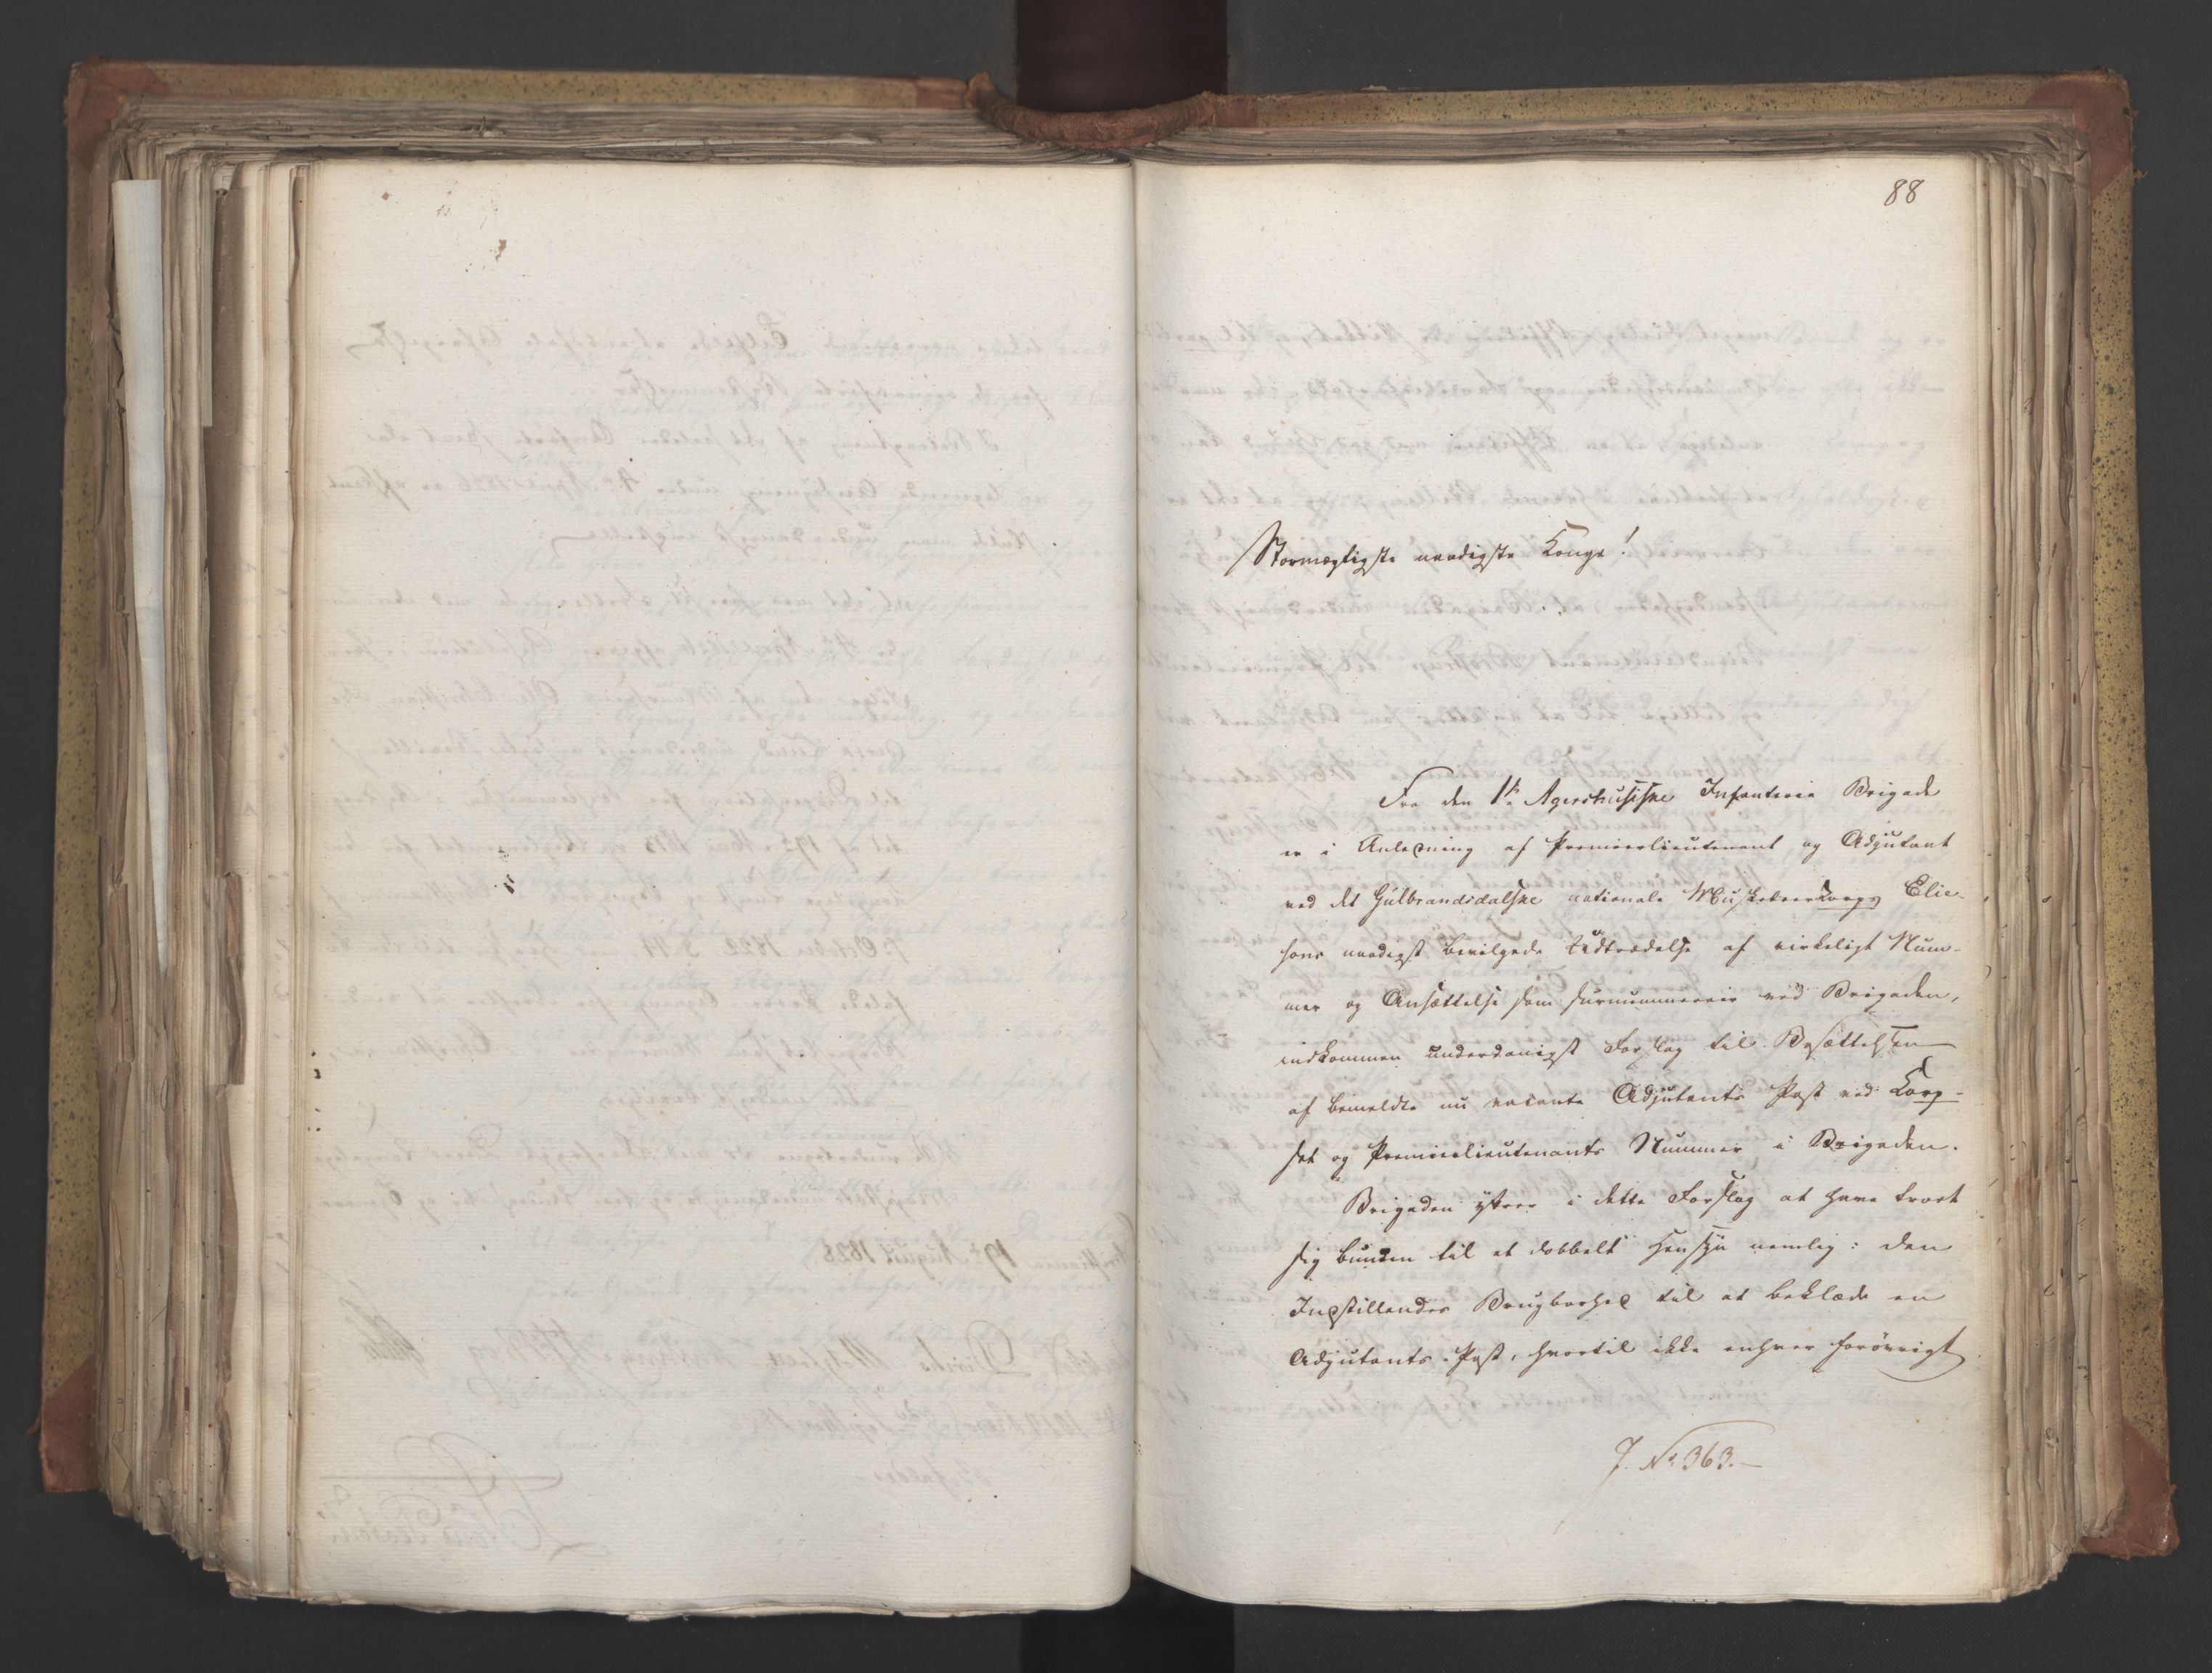 88
Stormægtigste naadigste Konge!
Fra den 1ste Agershusiske Infanterie Brigade
er i Anledning af Premierlieutenant og Adjutant
ved det Gulbrandsdalske nationale Musketeercorps Elie-
sons naadigst bevilgede Udtrædelse af virkeligt Num-
mer og Ansættelse som surnummerair ved Brigaden,
indkommen underdanigst Forslag til Besættelsen
af bemeldte nu vacante Adjutants Post ved Corp-
set og Premierlieutenants Nummer i Brigaden.
Brigaden yttrer i dette Forslag at have troet
sig bunden til et dobbelt Hensyn nemlig: den
Indstillendes Brugbarhed til at beklæde en
Adjutants-Post, hvortil ikke enhver forøvrigt
J. No 363.